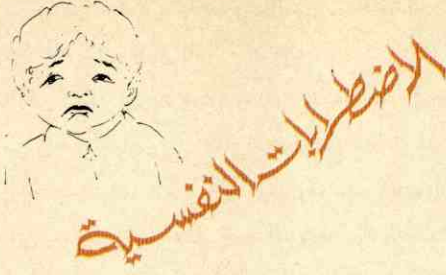 الاضطرابات النفسية